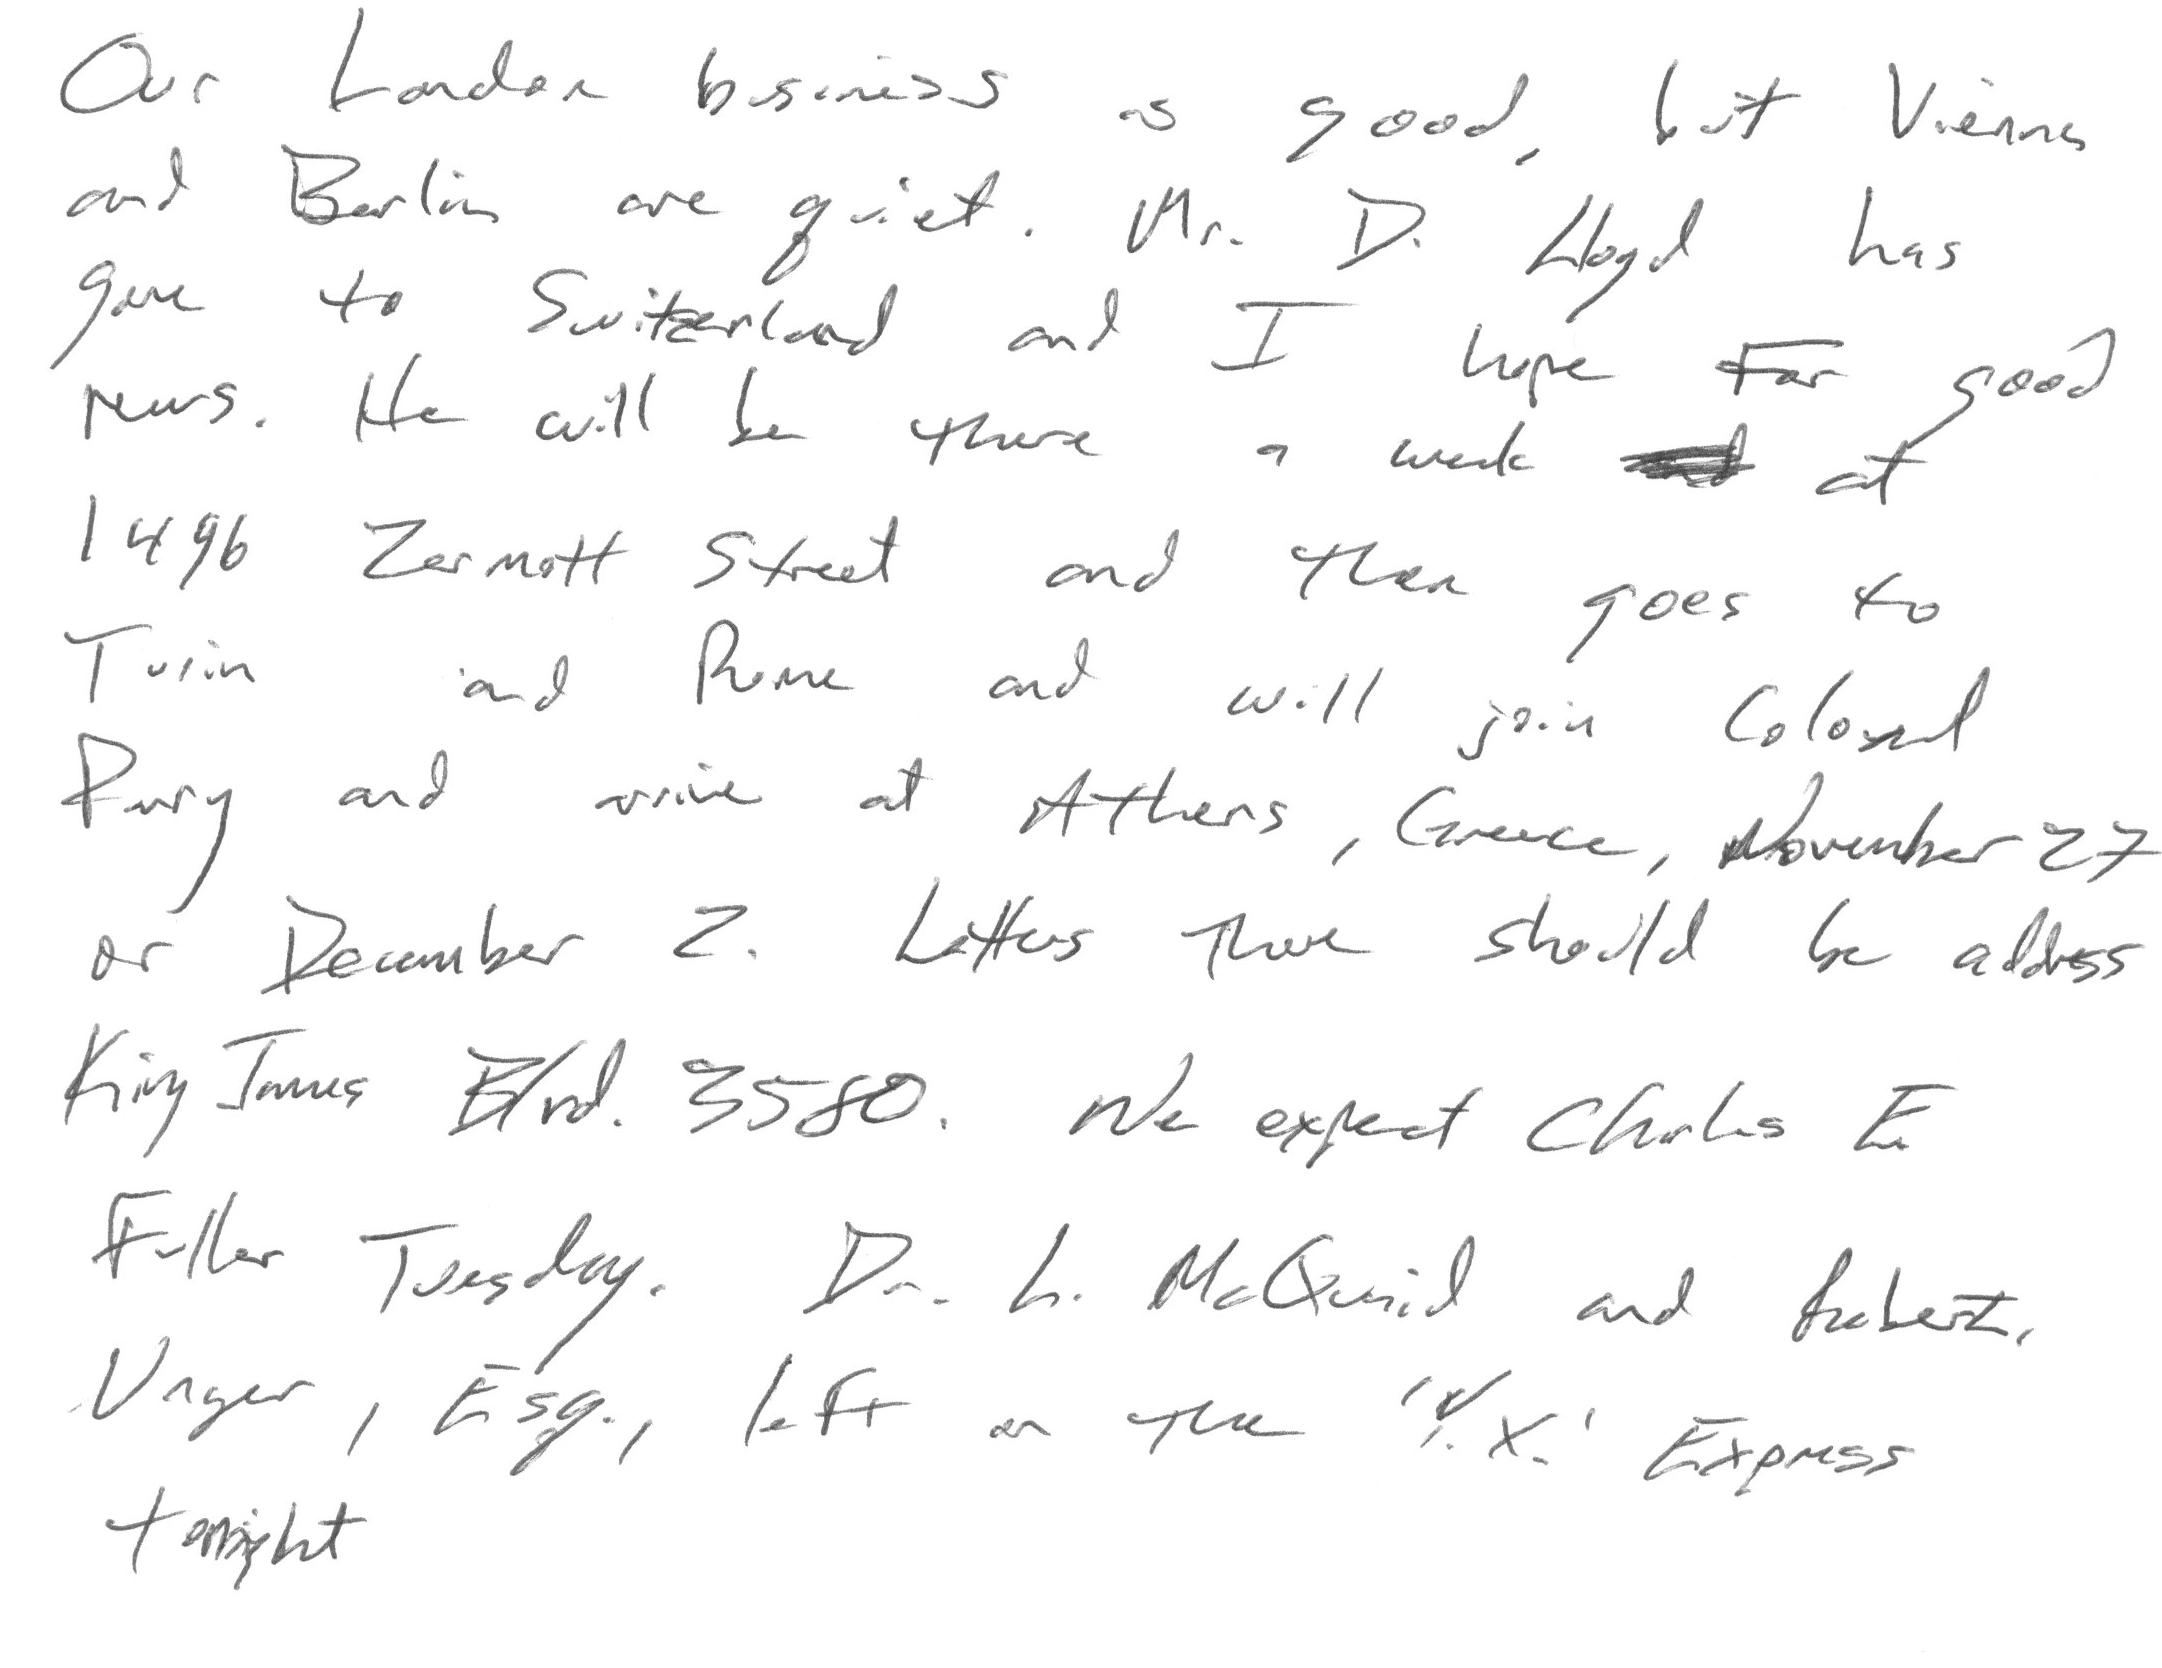 Our London business is good, but Vienna
and Berlin are quiet. Mr. D. Lloyd has
gone to Switzerland and I hope for good
news. He will be there a week at
1496 Zermott Street and then goes to
Turin and Rome and will join Colonel
Parry and arrive at Athens, Greece, November 27
or December 2. Letters there should be address
King James Blvd. 3580. We expect Charles E.
Fuller Tuesday. Dr. L. McQuaid and Robert.
Unger, Esq., left on the 'Y.X.' Express
tonight